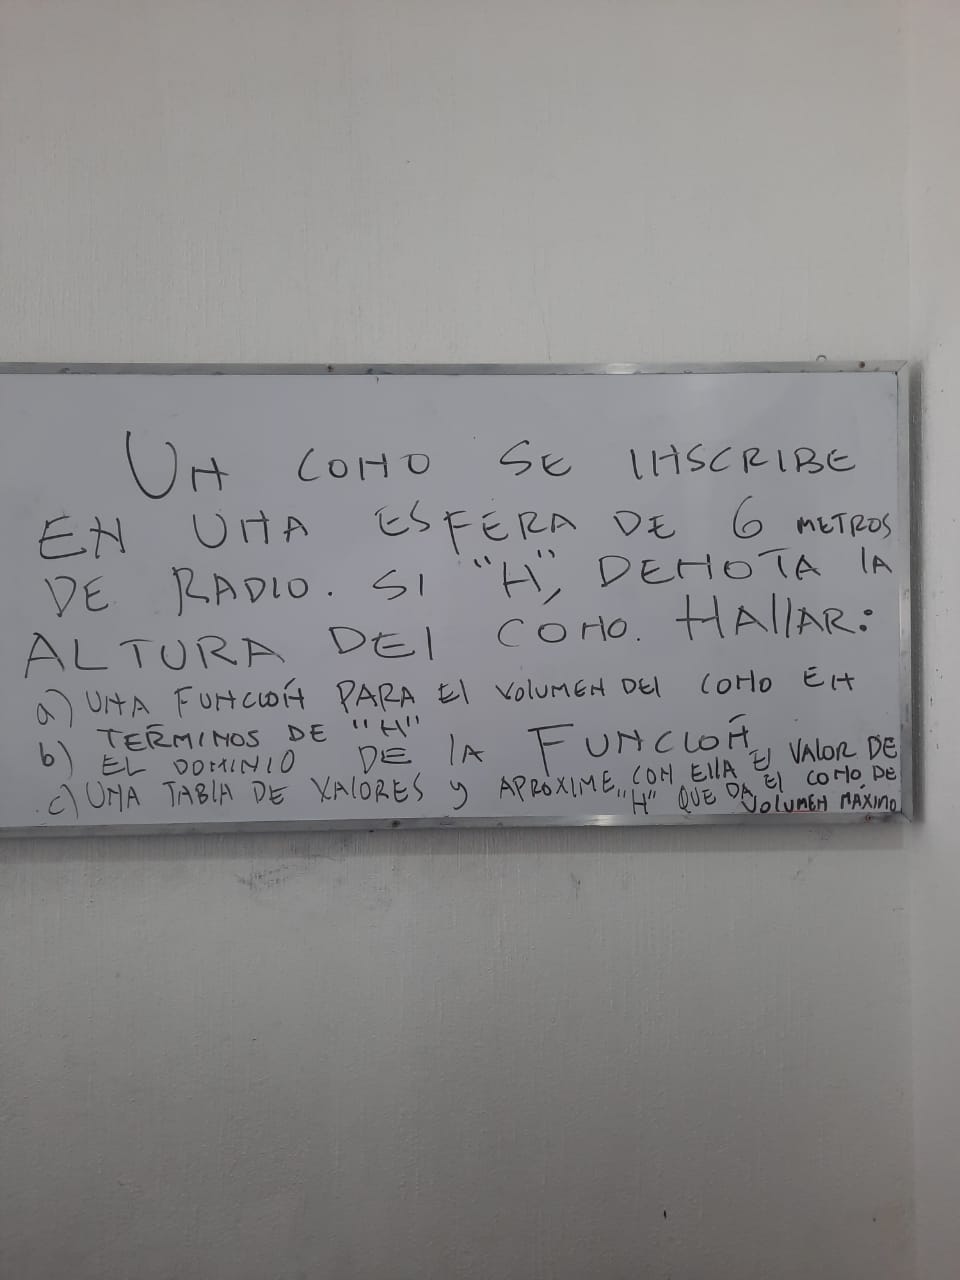 UN CONO SE INSCRIBE
EN UNA ESFERA DE 6 METROS
DE RADIO. SI "H", DENOTA lA
ALTURA DEl CONO. HAllAR:
a) UNA FUNCIÓN PARA El VOLUMEN DEl CONO EN
TERMINOS DE "H"
b) EL DOMINIO DE lA FUNCIÓN
c) UNA TABLA DE VALORES y APROXIME CON EllA El VALOR DE
"H" QUE DA El CONO DE
VOLUMEN MÁXIMO